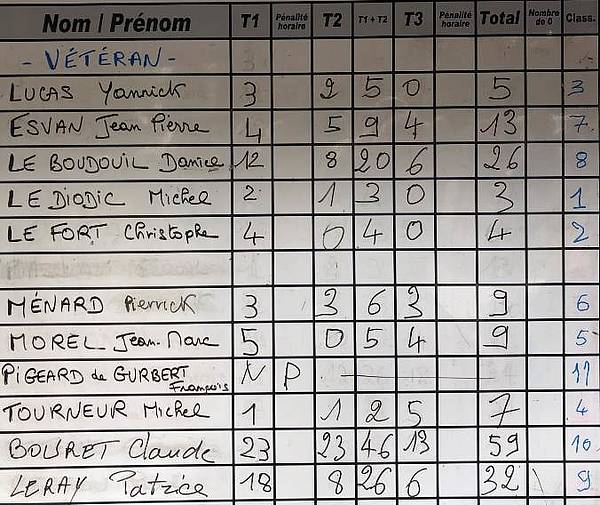 Nom / Prénom T1 Pénalité horaire T2 T1 + T2 T3 Pénalité horaire Total Nombre de 0 Class.
- VÉTÉRAN -
LUCAS Yannick 3 2 5 0 5 3
ESVAN Jean Pierre 4 5 9 4 13 7
LE BOUDOUIL Danice 12 8 20 6 26 8
LE DIODIC Michel 2 1 3 0 3 1
LE FORT Christophe 4 0 4 0 4 2
MÉNARD Pierrick 3 3 6 3 9 6
MOREL Jean-Marc 5 0 5 4 9 5
PIGEARD de GURBERT François N P 11
TOURNEUR Michel 1 1 2 5 7 4
BOURET Claude 23 23 46 13 59 10
LERAY Patrice 18 8 26 6 32 9